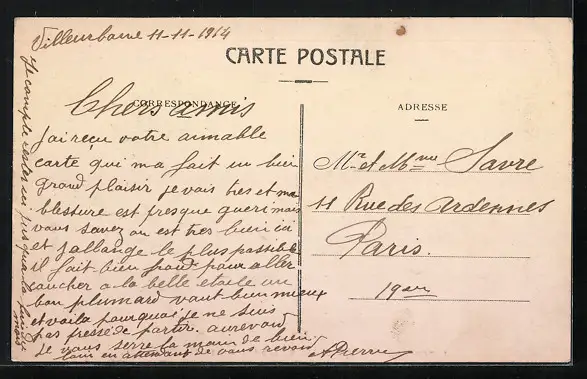 Villeurbanne 11-11-1914
CARTE POSTALE
CORRESPONDANCE
Chers amis
Jai reçu votre aimable
carte qui ma fait un bien
grand plaisir je vais tres et ma
blessure est presque gueri mais
vous savez on est tres bien ici
et jallange le plus possible
il fait bien froid pour aller
coucher a la belle etoile un
bon plumard vaut bien mieux
et voila pourquoi je ne suis
pas pressé de partir. aurevoir
je vous serre la main de bien
loin en attendant de vous revoir
APierre
Je compte rester ici jusqua la fin du
mois
ADRESSE
Mr et Mme Savre
11 Rue des Ardennes
Paris.
19em